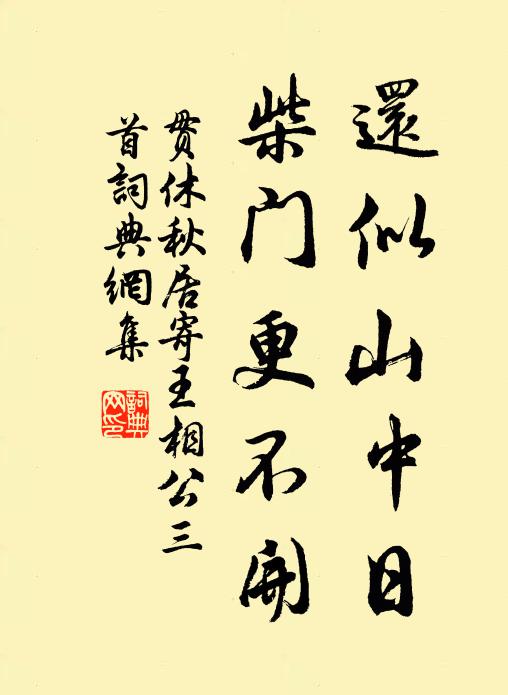 還似山中日
柴门更不開
贯休秋居寄王相公三
首詞典網集
詞典
网印